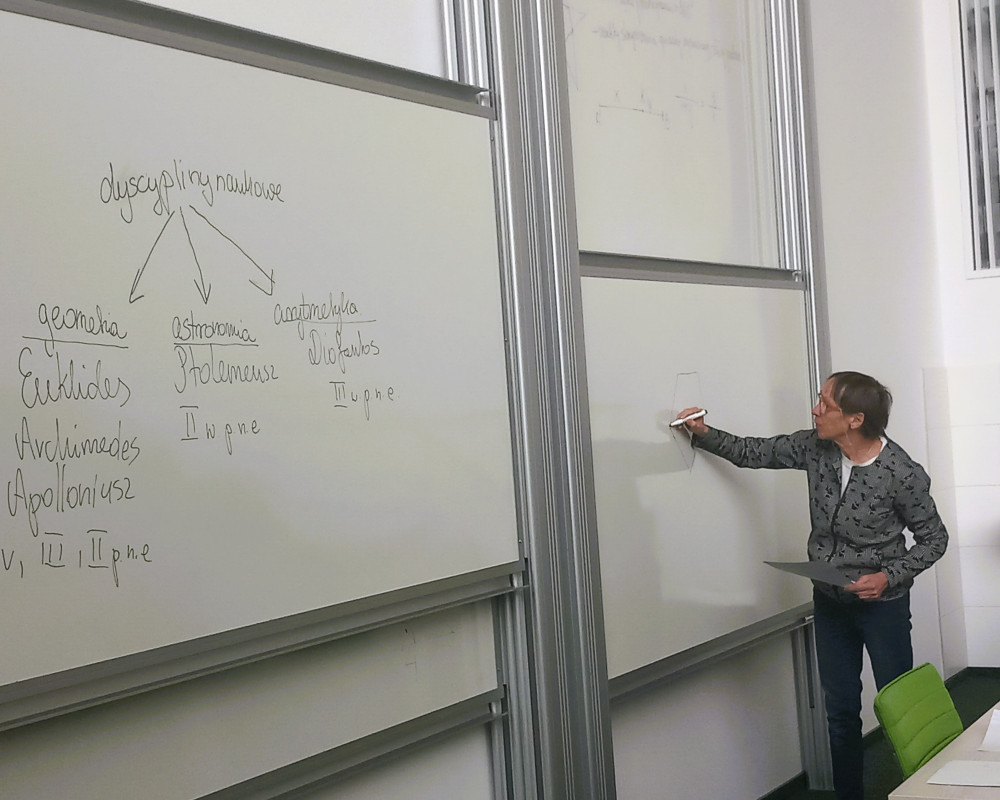 dyscypliny naukowe
geometria
Euklides
Archimedes
Apolloniusz
V, III, II p.n.e
astronomia
Ptolemeusz
II w p.n.e
arytmetyka
Diofantos
III w p.n.e.